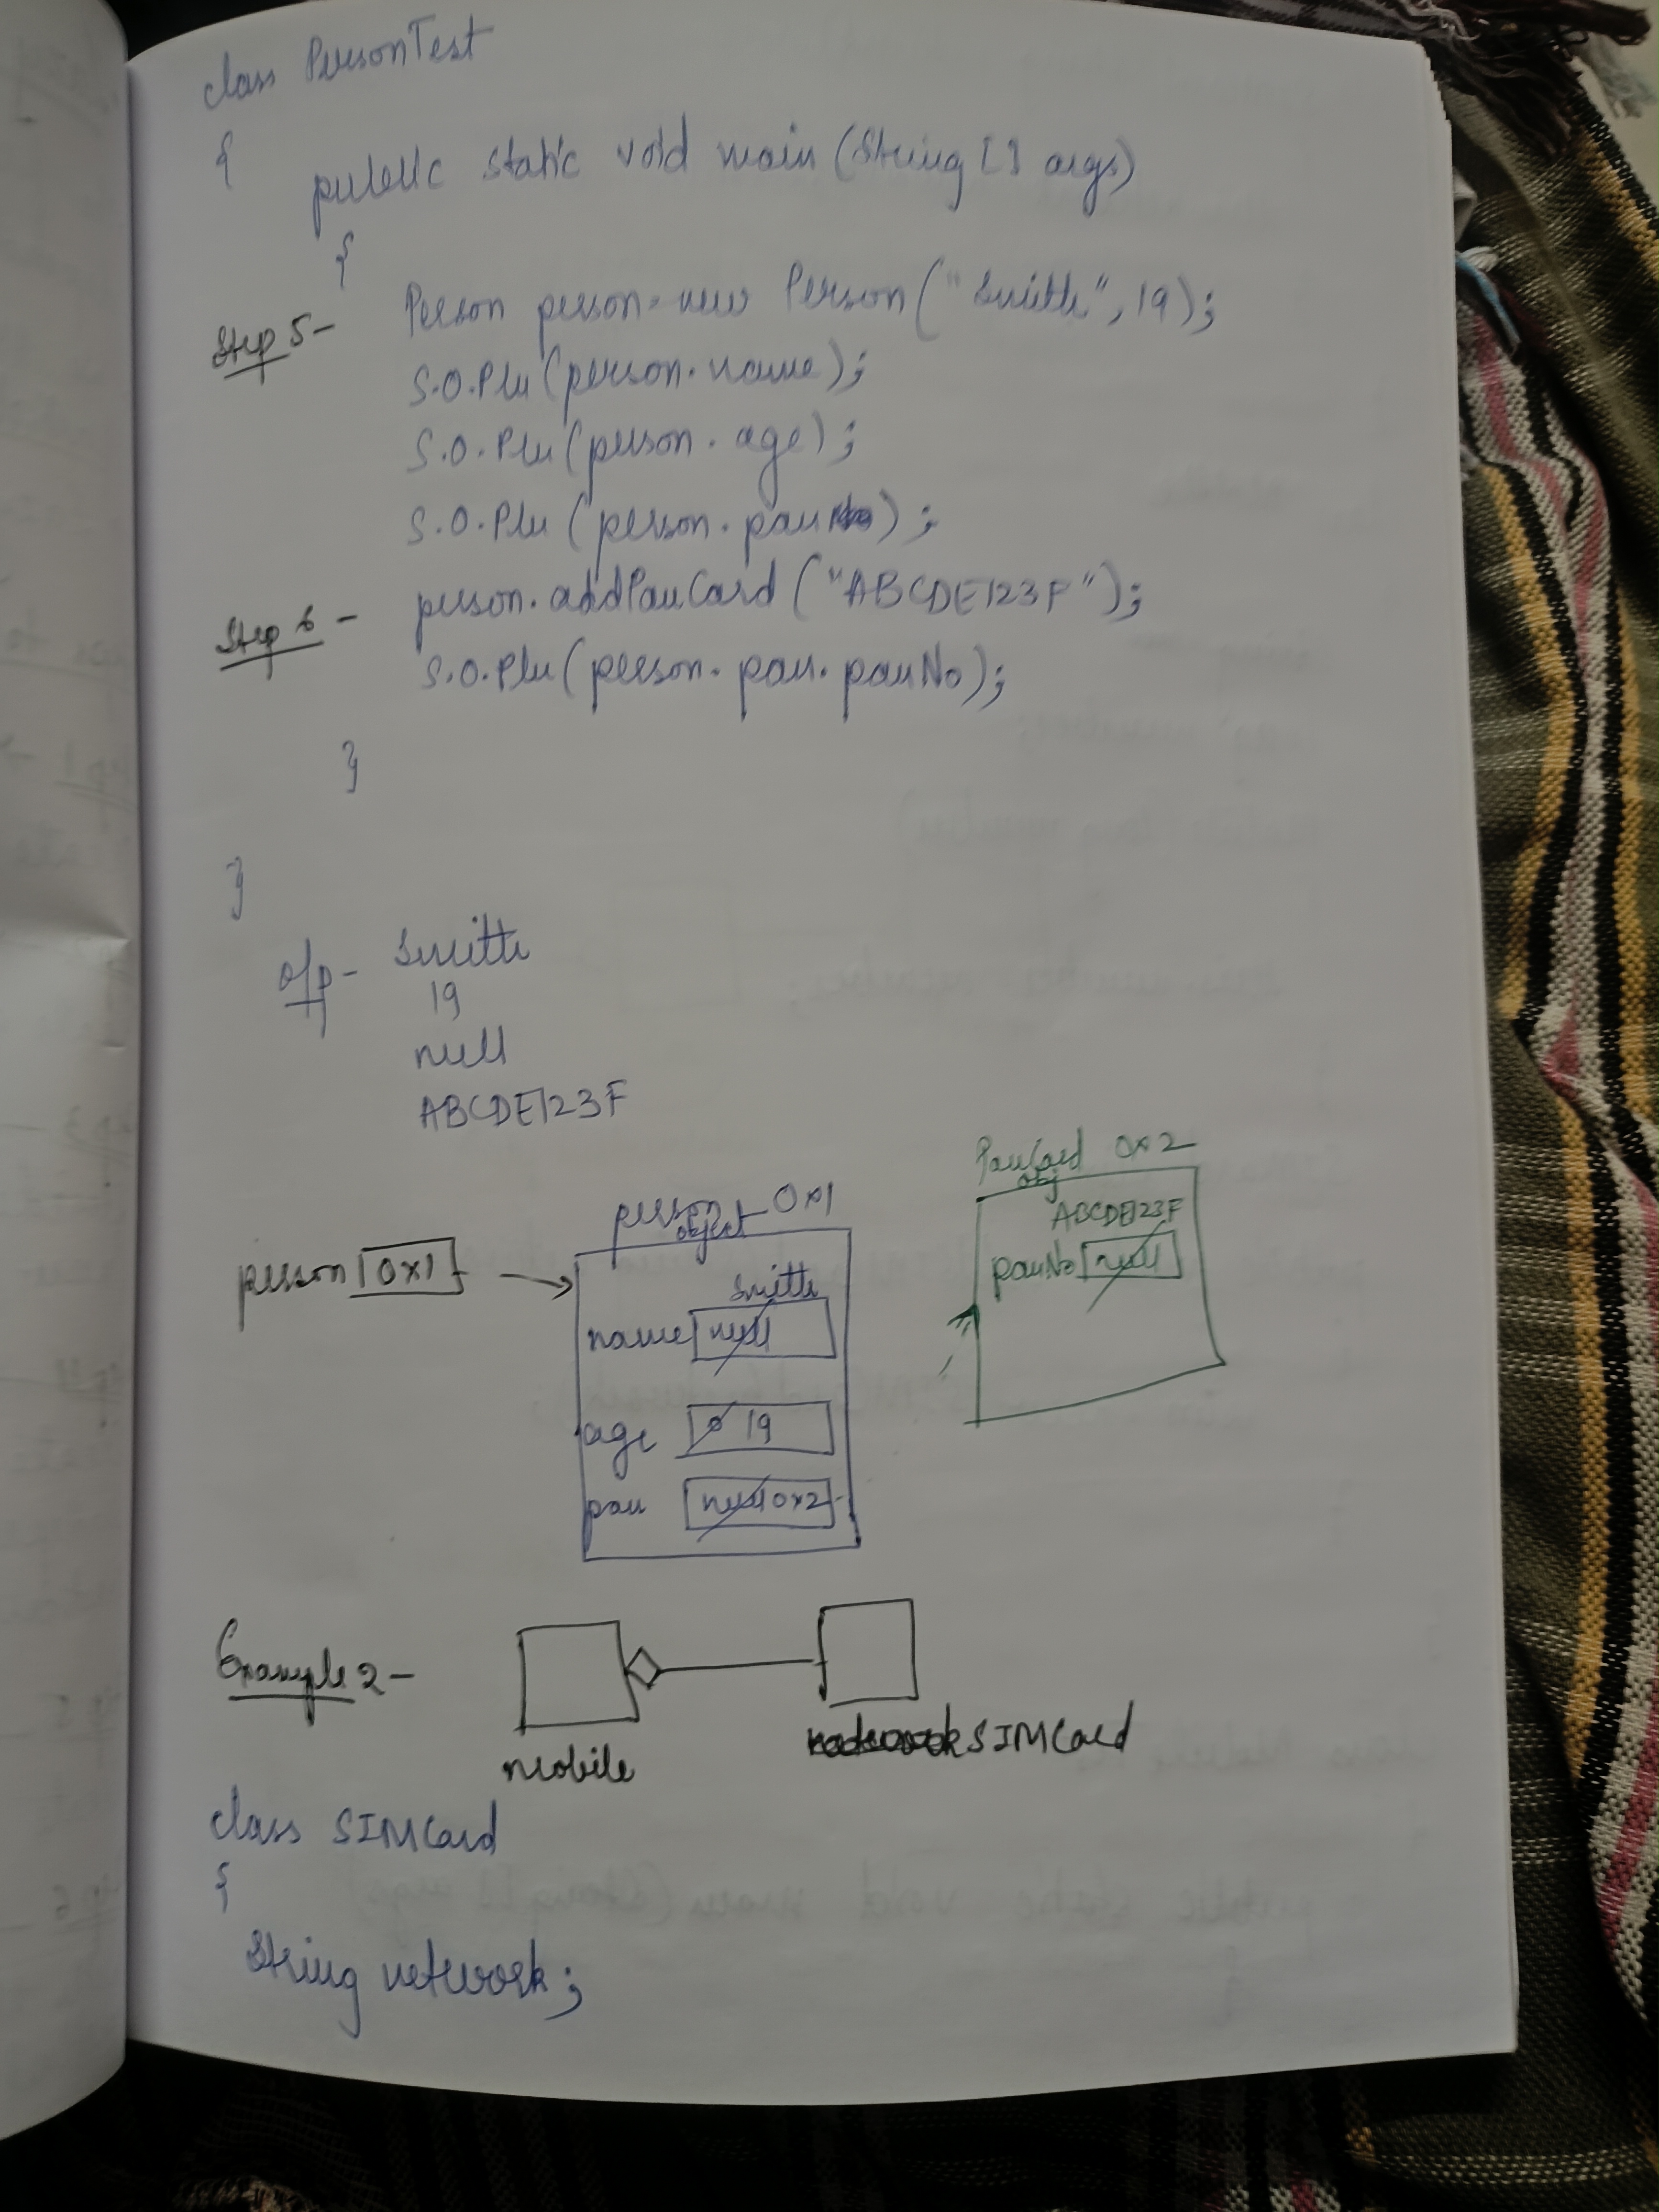 class PersonTest
{
public static void main (String [] args)
{
Step 5- Person person = new Person ("Smith", 19);
S.O.Pln (person. name);
S.O.Pln (person. age);
S.O.Pln (person. pan);
Step 6 - person. addPanCard ("ABCDE123F");
S.O.Pln (person. pan. panNo);
}
}
o/p - Smith
19
null
ABCDE123F
PanCard 0x2
obj
ABCDE123F
panNo null
person 0x1
object
person 0x1
Smith
name null
age 0 19
pan null 0x2
Example 2 -
mobile
SIMCard
class SIMCard
{
String network;